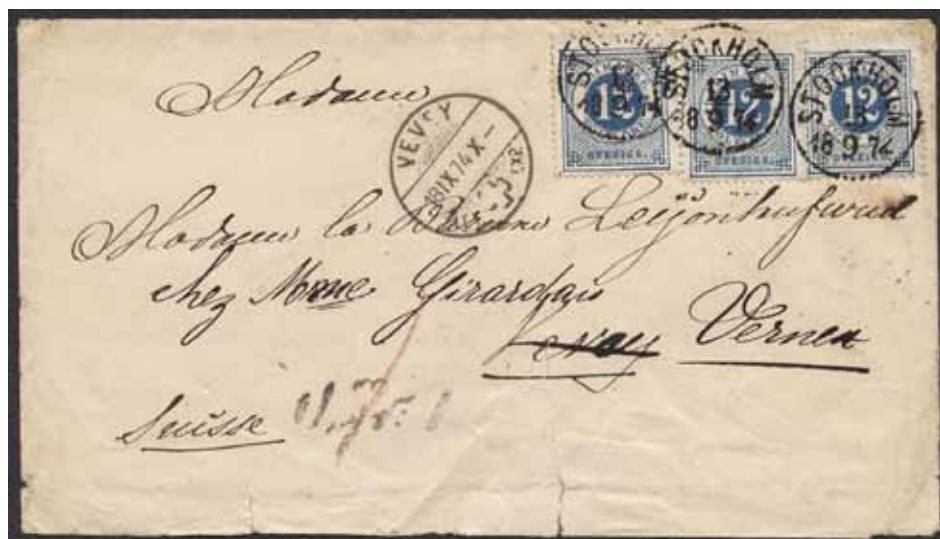 STOCKHOLM
18 9 74
12
SVERIGE
STOCKHOLM
13
18 9 74
12
SVERIGE
STOCKHOLM
18 9 74
12
SVERIGE
Madame
VEVEY
IX 74 X
Madame la Baronne Leijonhufvud
chez Mme Girardais
Vernex
Suisse